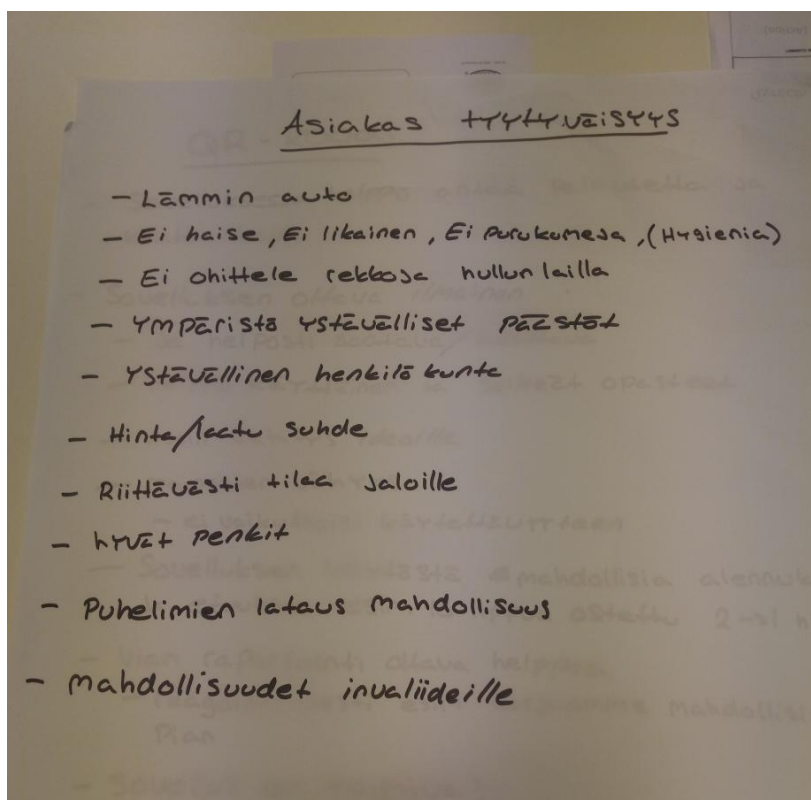 Asiakas tyytyväisyys
- Lämmin auto
- Ei haise, Ei likainen, Ei purukumeja, (Hygienia)
- Ei ohittele rekkoja hullun lailla
- Ympäristö ystävälliset päästöt
- Ystävällinen henkilö kunta
- Hinta/laatu suhde
- Riittävästi tilaa jaloille
- hyvät penkit
- Puhelimien lataus mahdollisuus
- mahdollisuudet invaliideille